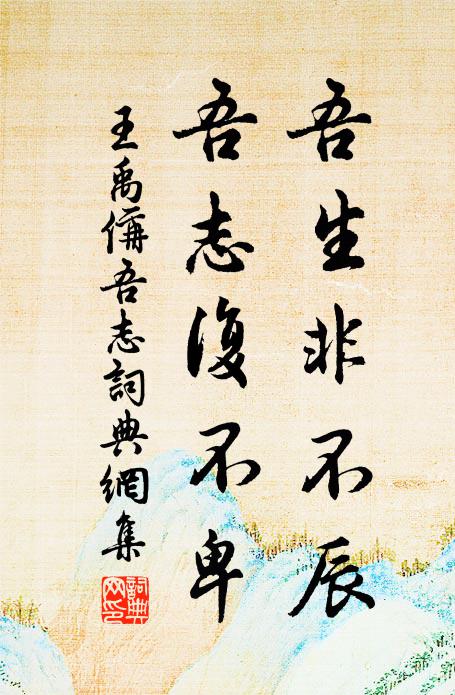 吾生非不辰
吾志復不卑
王禹偁吾志詞典網集
詞典網印